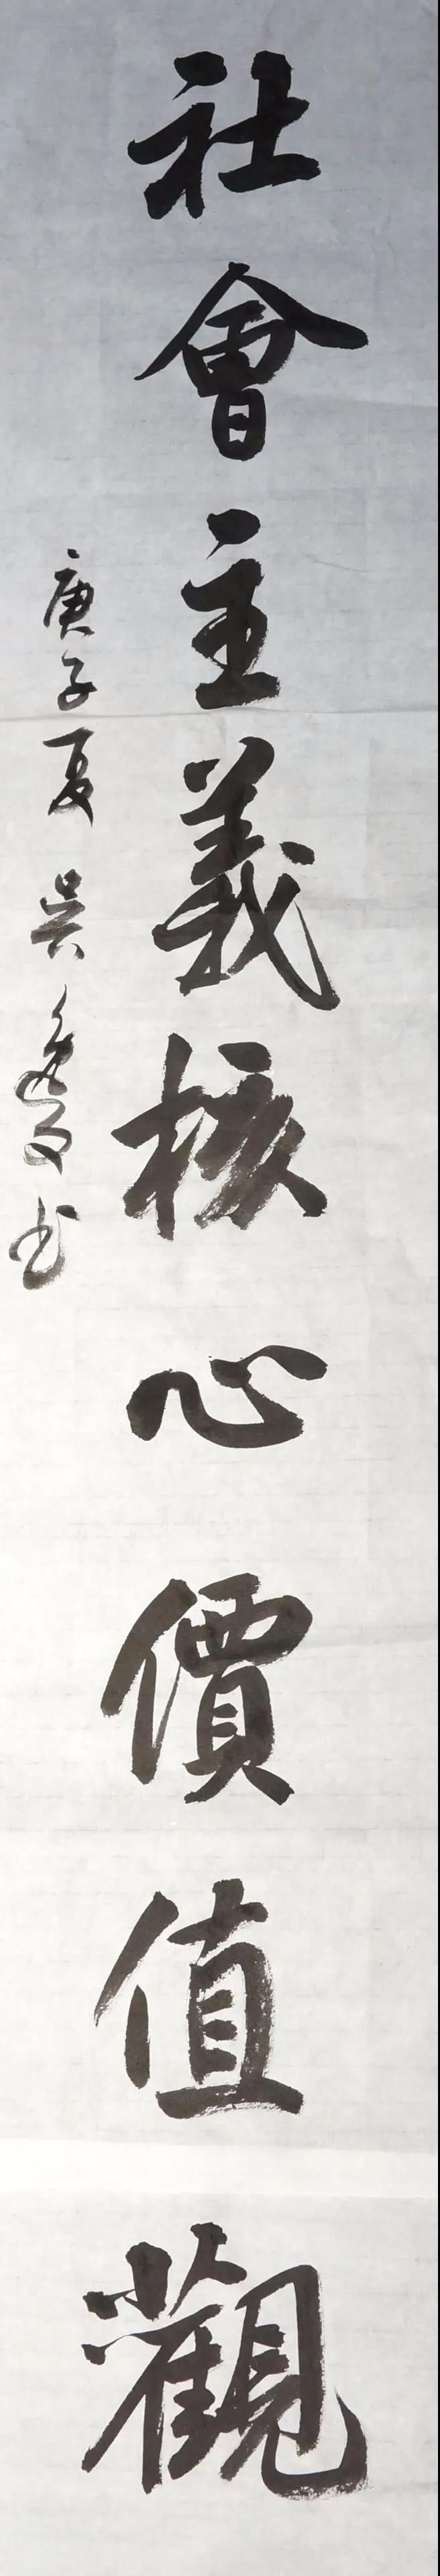 社會主義核心價值觀
庚子夏 吳 書